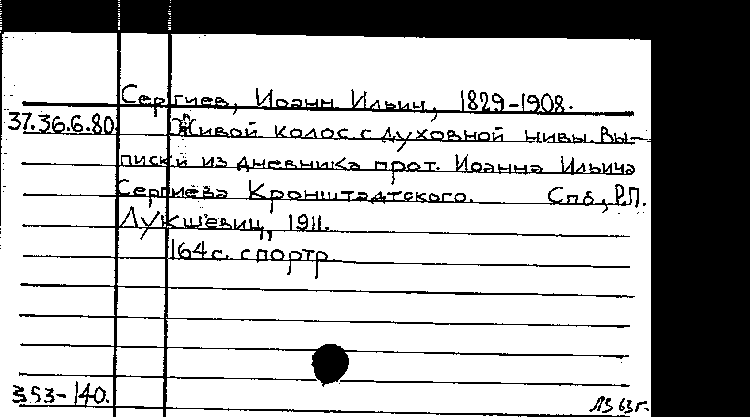 Сергиев, Иоанн Ильич, 1829-1908.
37.36.6.80. Живой колос с духовной нивы. Вы-
писки из дневника прот. Иоанна Ильича
Сергиева Кронштадтского. Спб., Р.П.
Лукшевиц, 1911.
164 с. с портр.
353-140.
ЛЗ 63г.